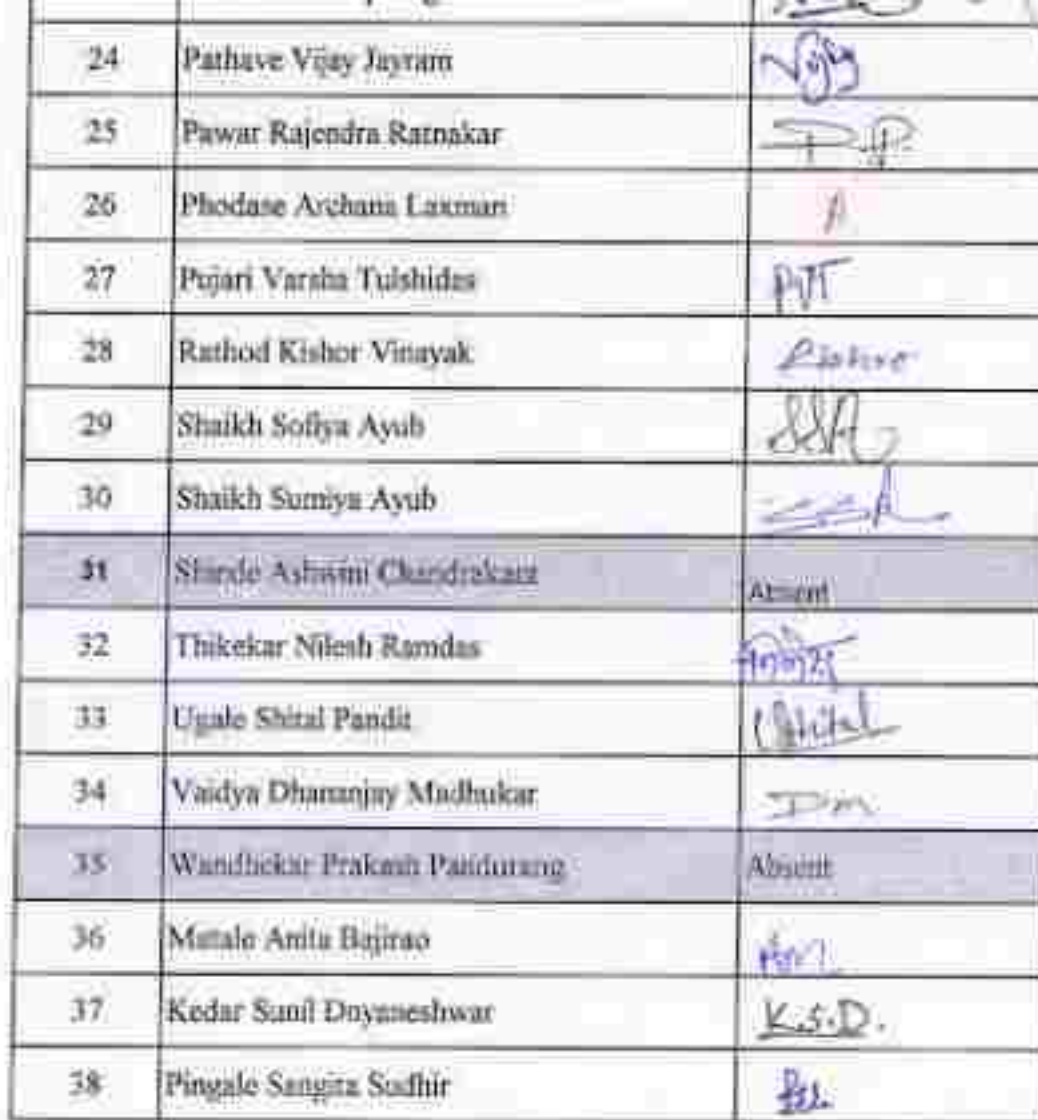 24 Pathave Vijay Jayram Vijay
25 Pawar Rajendra Ratnakar
26 Phodase Archana Laxman A
27 Pujari Varsha Tulshidas
28 Rathod Kishor Vinayak
29 Shaikh Sofiya Ayub SSA
30 Shaikh Sumiya Ayub
31 Shinde Ashwini Chandrakant Absent
32 Thikekar Nilesh Ramdas
33 Ugale Shital Pandit Shital
34 Vaidya Dhananjay Madhukar Dm
35 Wandhekar Prakash Pandurang Absent
36 Matale Anita Bajirao
37 Kedar Sunil Dnyaneshwar K.S.D.
38 Pingale Sangita Sudhir